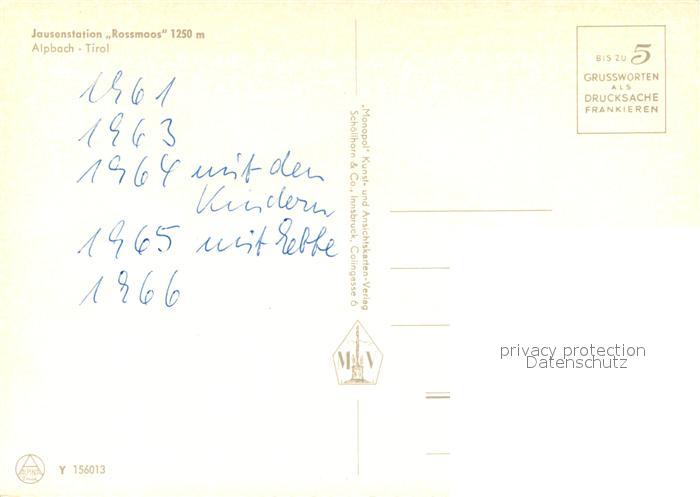 Jausenstation „Rossmoos" 1250 m
Alpbach - Tirol
1961
1963
1964 mit den
Kindern
1965 mit Ebbe
1966
„Monopol" Kunst- und Ansichtskarten-Verlag
Schöllhorn & Co., Innsbruck, Colingasse 6
M V
BIS ZU 5
GRUSSWORTEN
ALS
DRUCKSACHE
FRANKIEREN
privacy protection
Datenschutz
ALPINA
Y 156013